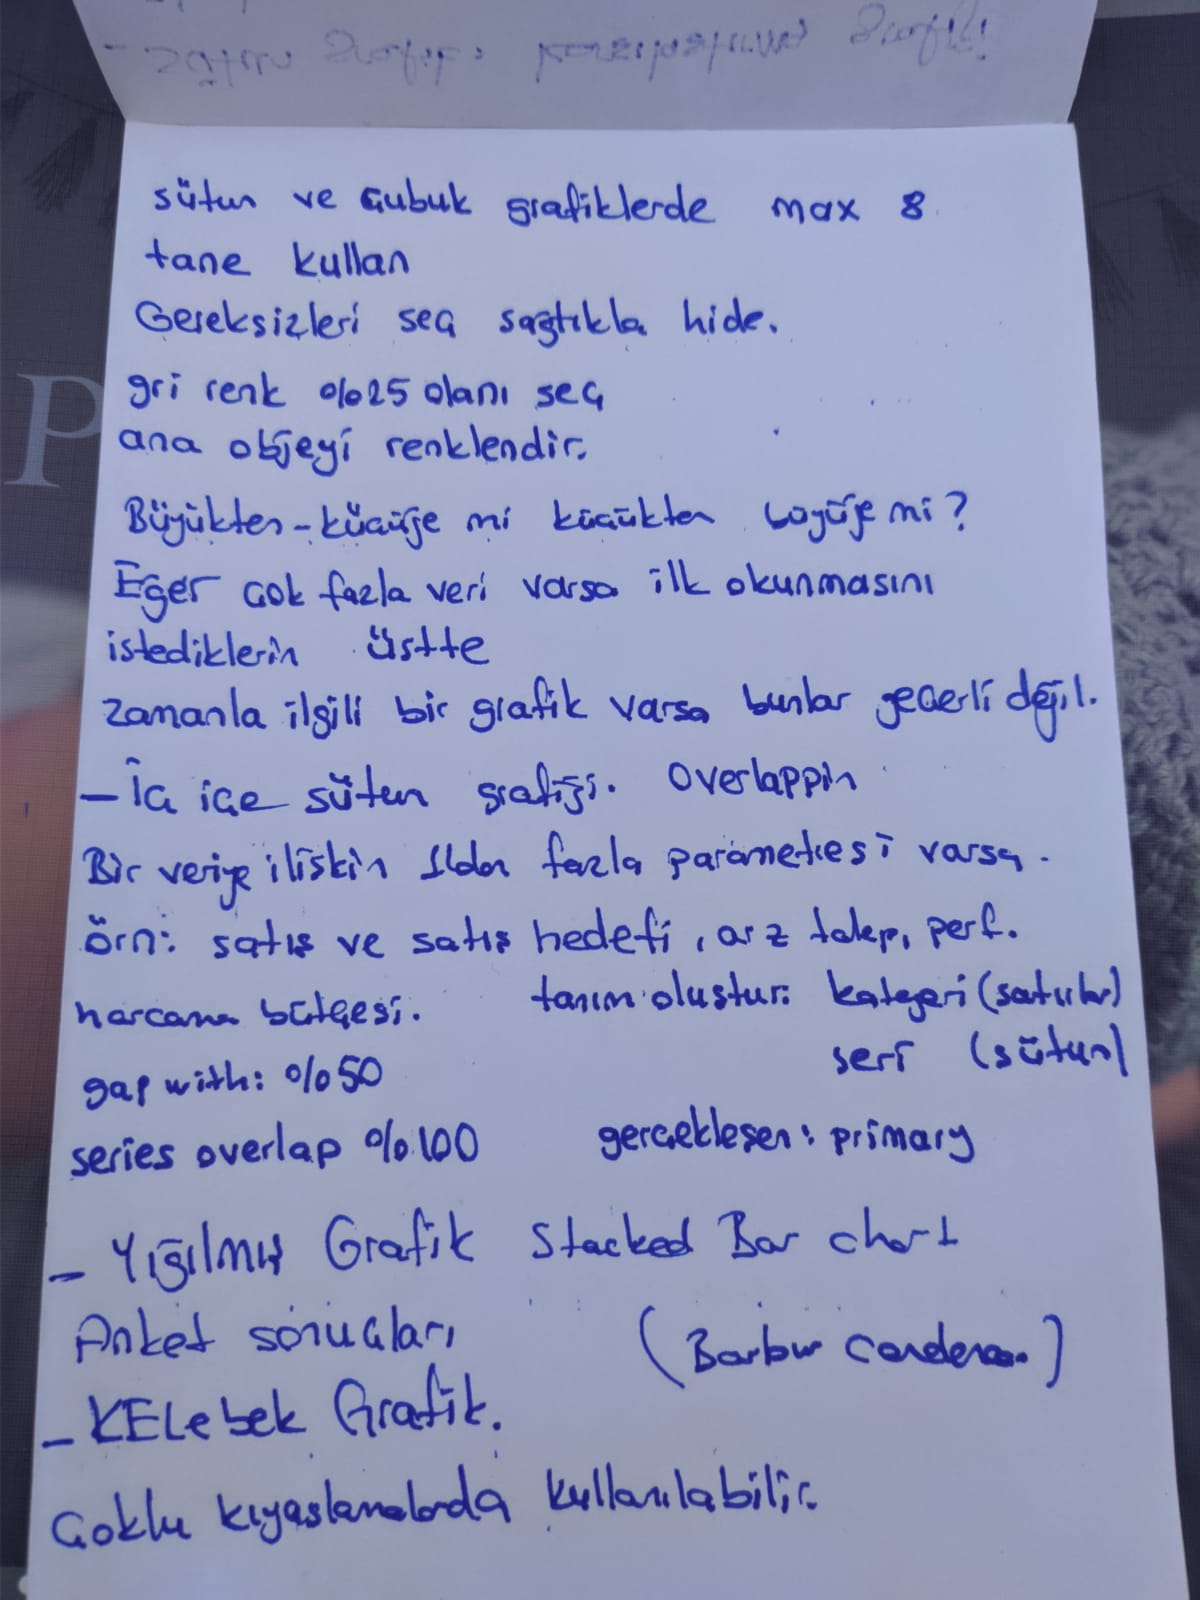 - sütun grafik:
sütun ve çubuk grafiklerde max 8
tane kullan
Gereksizleri seç sağtıkla hide.
gri renk %25 olanı seç
P
ana objeyi renklendir.
Büyükten-küçüğe mi küçükten büyüğe mi?
Eğer çok fazla veri varsa ilk okunmasını
istediklerin üstte
zamanla ilgili bir grafik varsa bunlar geçerli değil.
- İç içe sütun grafiği. Overlappin
Bir veriye ilişkin 1'den fazla parametresi varsa.
örn: satış ve satış hedefi, arz talep, perf.
harcama bütçesi. tanım oluştur: kategori (satırlar)
seri (sütun)
gap with: %50
series overlap %100 gerçekleşen: primary
- Yığılmış Grafik Stacked Bar chart
Anket sonuçları (Barbur
- KELebek Grafik.
Çoklu kıyaslamalarda kullanılabilir.